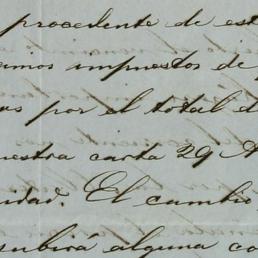 procedente de est
amos impuestos de
as por el total d
uestra carta 29 A
udad. El cambio
subirá alguna co